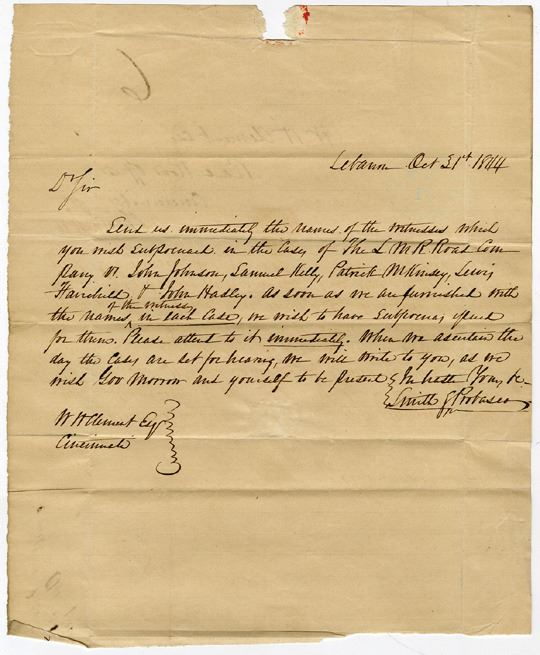 Lebanon Oct 31st 1844
Dr Sir
Send us immediately the names of the witnesses which
you wish Subpoenaed in the Cases of The L M R. Road Com
pany vs. John Johnson, Samuel Kelly, Patrick McKinsey, Lewis
Fairchild & John Hadley. As soon as we are furnished with
of the witnesses
the names in each Case, we wish to have Subpoenas issued
for them. Please attend to it immediately. When we ascertain the
day the Cases are set for hearing, we will write to you, as we
wish Gov Morrow and yourself to be present In haste Yours &c.
Smith & Probasco
W H Clement Esqr
Cincinnati